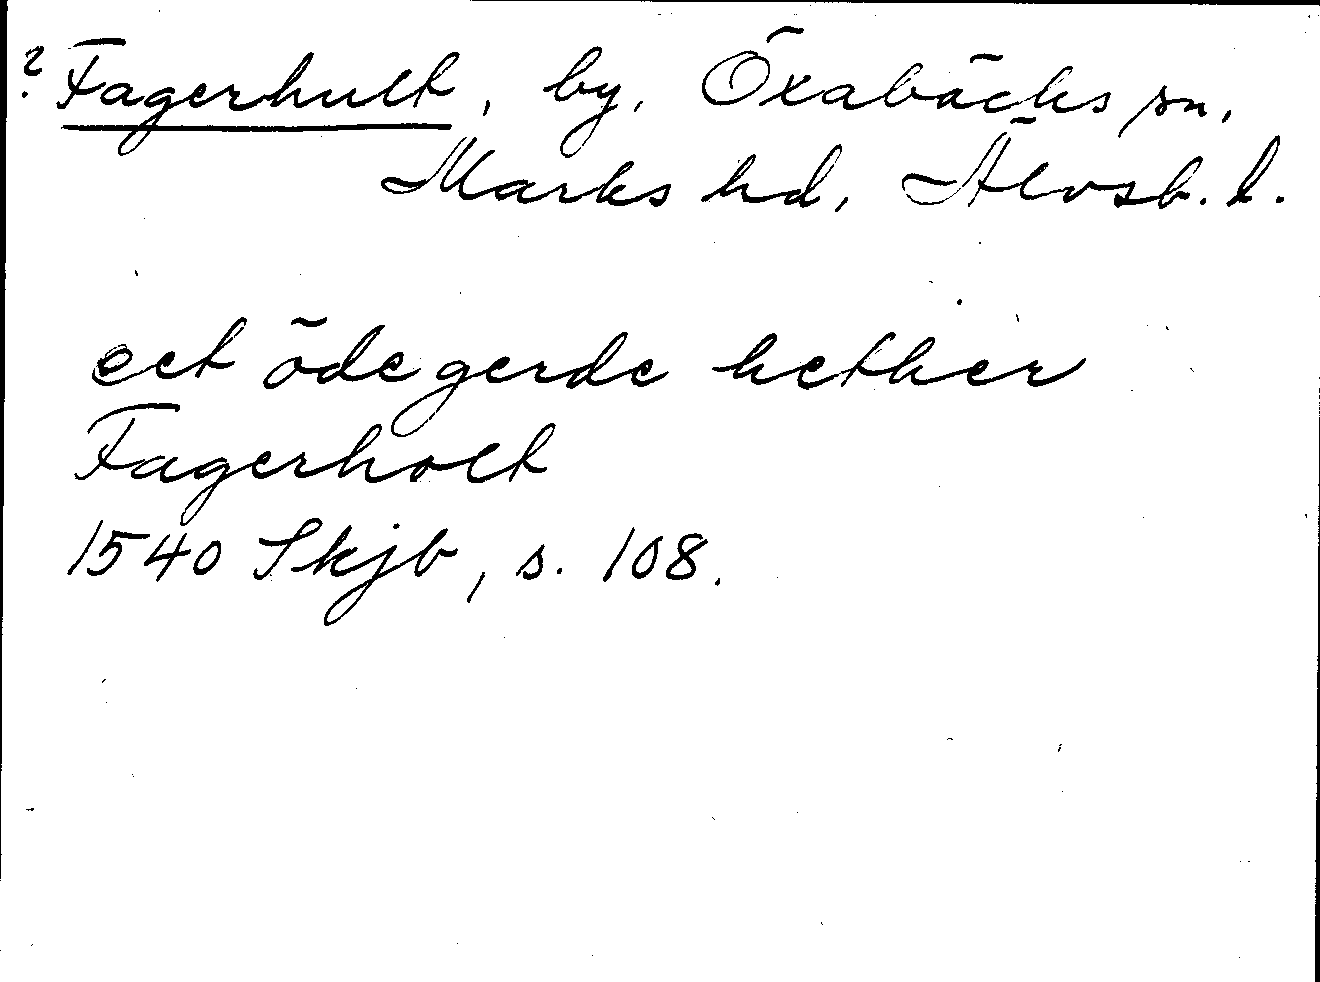 ? Fagerhult, by, Öxabäcks sn,
Marks hd, Älvsb. l.
eet öde gerde hether
Fagerholt
1540 Skjb, s. 108.